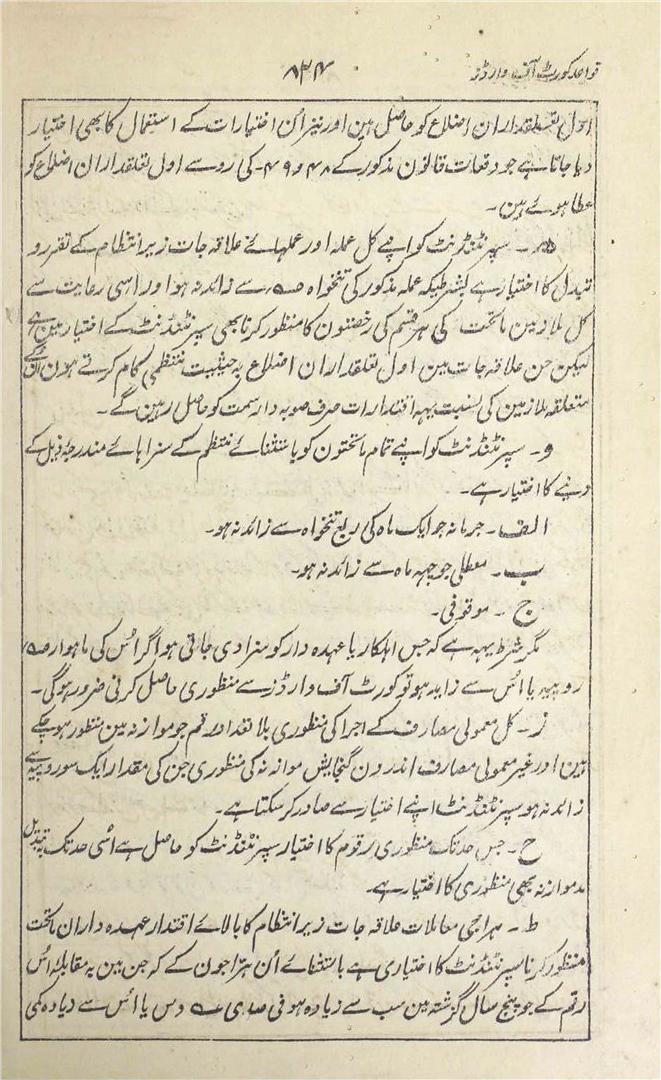 قواعد کورٹ آف وارڈز
اول تعلقداران اضلاع کو حاصل ہین اور نیز اُن اختیارات کے استعمال کا بھی اختیار
دیا جاتا ہے جو دفعات قانون مذکور کے ۴۸ و ۴۹۔ کی رو سے اول تعلقداران اضلاع کو
عطا ہوئے ہین۔
ھ۔ سپرنٹنڈنٹ کو اپنے کل عملہ اور عملہائے علاقہ جات زیر انتظام کے تقرر و
تبدل کا اختیار ہے بشرطیکہ عملہ مذکور کی تنخواہ سے زائد نہ ہو اور اسی رعایت سے
کل ملازمین ماتحت کی ہر قسم کی رخصتون کا منظور کرنا بھی سپرنٹنڈنٹ کے اختیار مین ہے
لیکن جن علاقہ جات مین اول تعلقداران اضلاع بہ حیثیت منتظمی کام کرتے ہون اُن کے
متعلقہ ملازمین کی نسبت یہہ اقتدارات صرف صوبہ دار سمت کو حاصل رہین گے۔
و۔ سپرنٹنڈنٹ کو اپنے تمام ماتحتون کو باستثنائے منتظم کے سزاہائے مندرجہ ذیل کے
دینے کا اختیار ہے۔
الف۔ جرمانہ جو ایک ماہ کی ربع تنخواہ سے زائد نہ ہو۔
ب۔ معطلی جو چہہ ماہ سے زائد نہ ہو۔
ج۔ موقوفی۔
مگر شرط یہہ ہے کہ جس اہلکار یا عہدہ دار کو سزا دی جاتی ہو اگر اُس کی ماہوار
روپیہ یا اُس سے زاید ہو تو کورٹ آف وارڈز سے منظوری حاصل کرنی ضرور ہوگی۔
ز۔ کل معمولی مصارف کے اجرا کی منظوری بلا تعداد رقم جو موازنہ مین منظور ہو چکے
ہین اور غیر معمولی مصارف اندرون گنجایش موازنہ کی منظوری جن کی مقدار ایک سو روپیہ سے
زائد نہ ہو سپرنٹنڈنٹ اپنے اختیار سے صادر کر سکتا ہے۔
ح۔ جس حد تک منظوری رقوم کا اختیار سپرنٹنڈنٹ کو حاصل ہے اُسی حد تک بہ تبدیل
مد موازنہ بھی منظوری کا اختیار ہے۔
ط۔ ہراجی معاملات علاقہ جات زیر انتظام کا بالائے اقتدار عہدہ داران ماتحت
منظور کرنا سپرنٹنڈنٹ کا اختیاری ہے باستثنائے اُن ہراجون کے کہ جن مین بہ مقابلہ اُس
رقم کے جو پنج سال گزشتہ مین سب سے زیادہ ہو فی صدی دس یا اُس سے زیادہ کمی